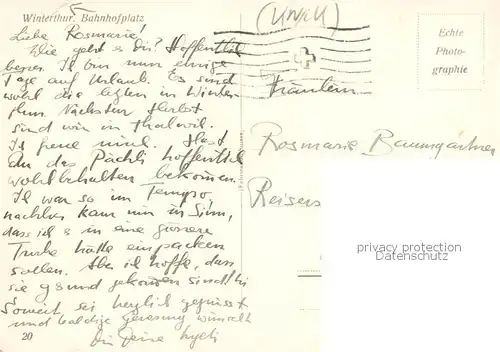 Winterthur. Bahnhofplatz
(UNGU)
Liebe Rosmarie!
Wie geht es dir? Hoffentlich
besser. Ich bin nun einige
Tage auf Urlaub. Es sind
wohl die letzten in Winter-
thur. Nächsten Herbst
sind wir in Thalwil.
Ich freue mich. Hast
du das Päckli hoffentlich
wohlbehalten bekommen.
Ich war so im Tempo,
nachher kam mir in Sinn,
dass ich s in eine grössere
Trucke hätte einpacken
sollen. Aber ich hoffe, dass
sie gsund gekommen sind
Soweit sei herzlich gegrüsst
und baldige Genesung wünscht
dir Deine
20
Echte
Photo-
graphie
Fräulein
Rosmarie Baumgartner
privacy protection
Datenschutz